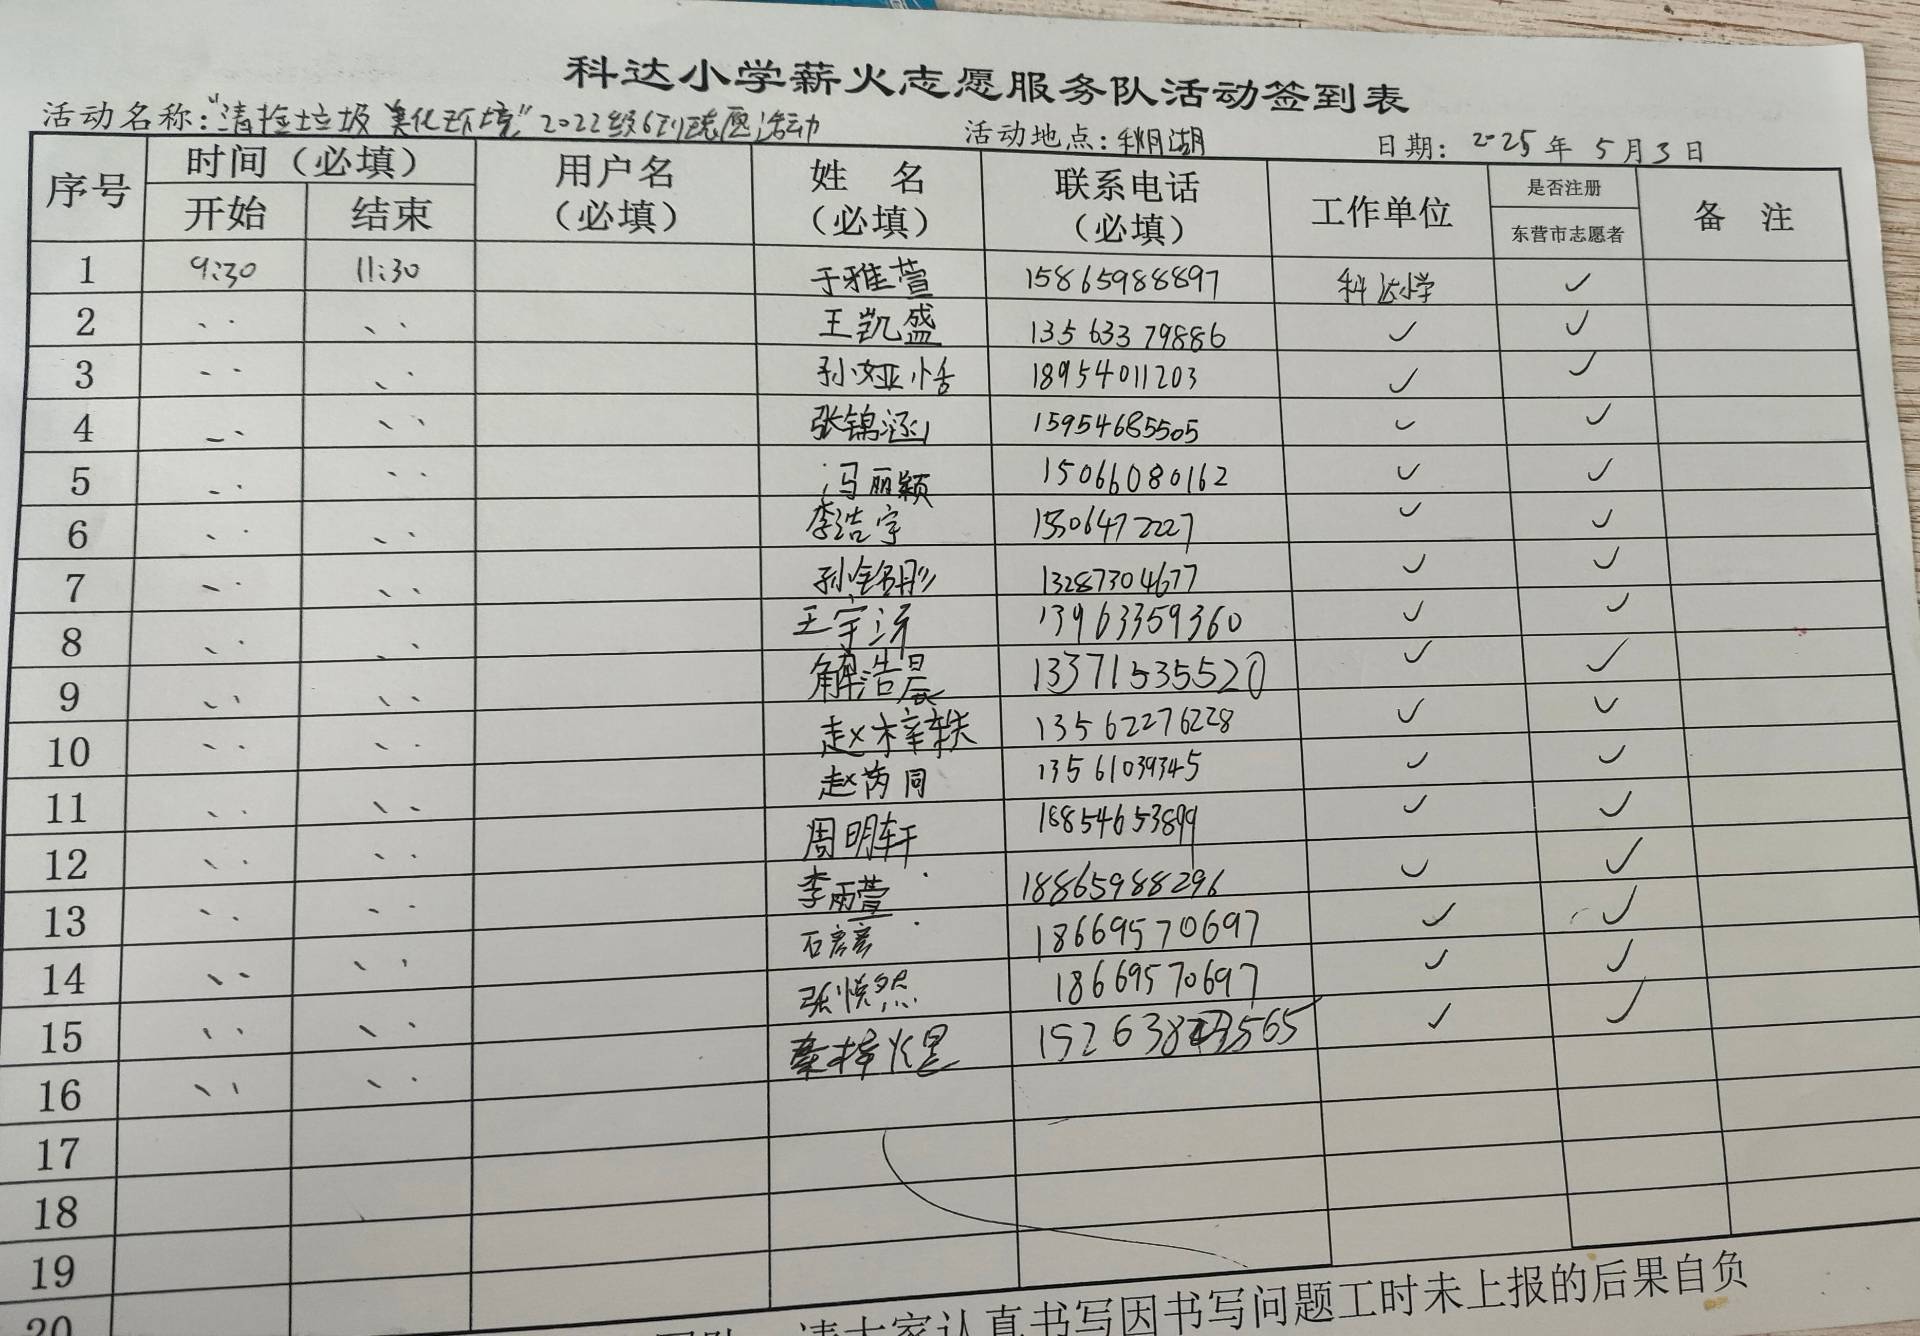 科达小学薪火志愿服务队活动签到表
活动名称:"清捡垃圾 美化环境"2022级6班志愿活动 活动地点:秋月湖 日期: 2025 年 5 月 3 日
序号 时间（必填） 用户名（必填） 姓 名（必填） 联系电话（必填） 工作单位 是否注册 备 注
开始 结束 东营市志愿者
1 9:30 11:30 于雅萱 15865988897 科达小学 ✓
2 、、 、、 王凯盛 13563379886 ✓ ✓
3 、、 、、 孙娅恬 18954011203 ✓ ✓
4 、、 、、 张锦涵 15954685505 ✓ ✓
5 、、 、、 冯丽颖 15066080162 ✓ ✓
6 、、 、、 李浩宇 15306472227 ✓ ✓
7 、、 、、 孙铭彤 13287304677 ✓ ✓
8 、、 、、 王宇沂 13963359360 ✓ ✓
9 、、 、、 解浩晨 13371535520 ✓ ✓
10 、、 、、 赵梓轶 13562276228 ✓ ✓
11 、、 、、 赵芮同 13561039345 ✓ ✓
12 、、 、、 周明轩 18854653899 ✓ ✓
13 、、 、、 李雨萱 18865988296 ✓ ✓
14 、、 、、 石彦彦 18669570697 ✓ ✓
15 、、 、、 张悦然 18669570697 ✓ ✓
16 、、 、、 秦梓煜 ✓ ✓
17
18
19
20
请大家认真书写因书写问题工时未上报的后果自负